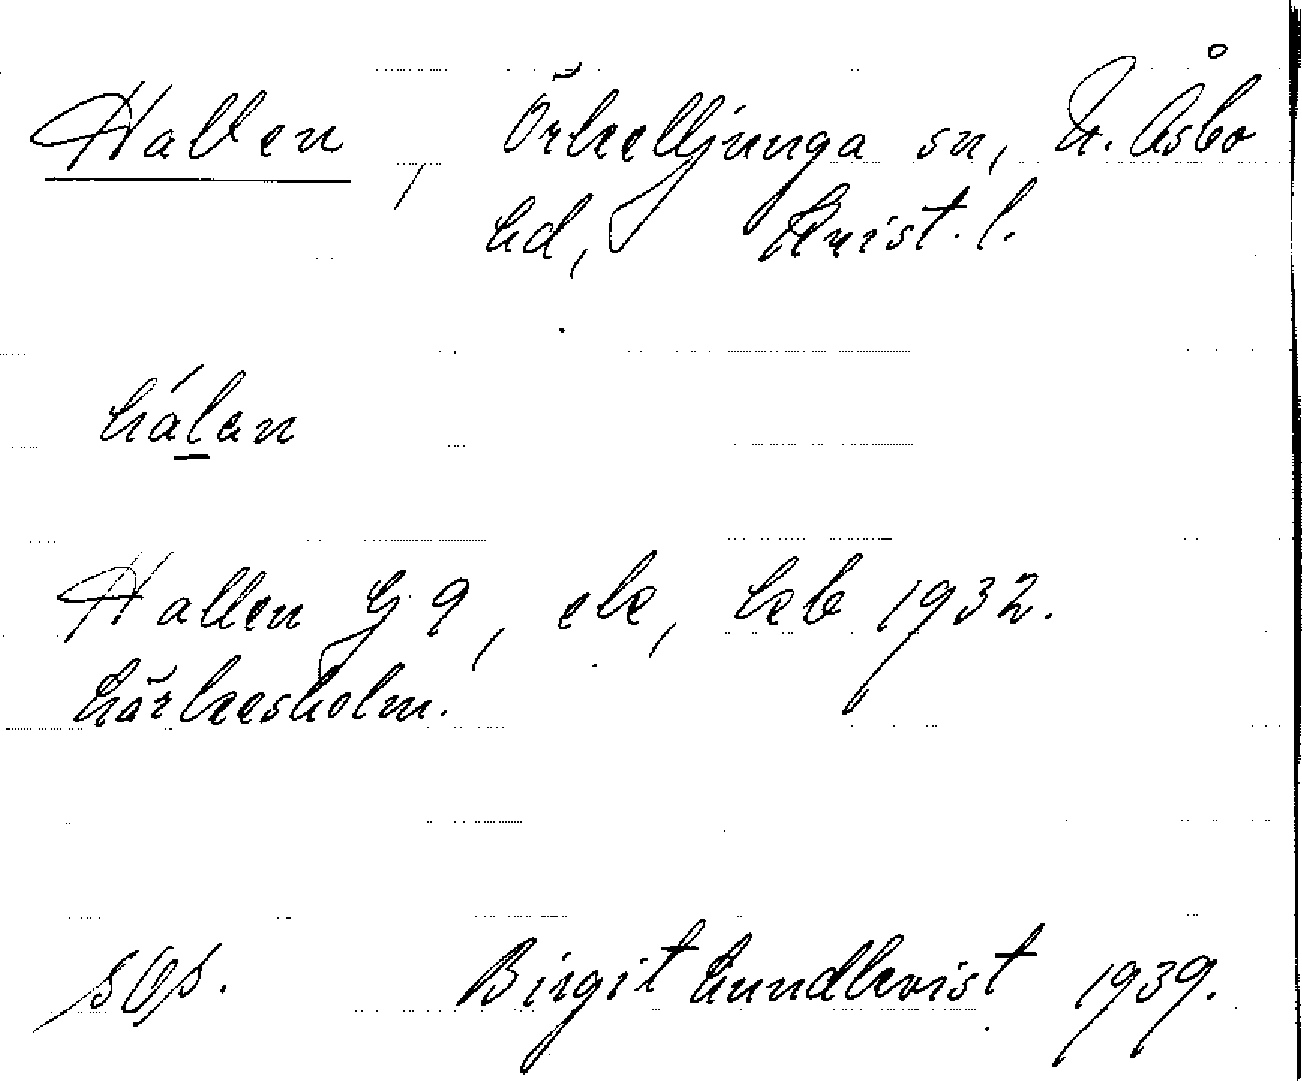 Hallen, Örkelljunga sn, N. Åsbo
hd, Krist. l.
hálan
Hallen G 9, ek, kb 1932.
Härkesholm.
Birgit Lundkvist 1939.